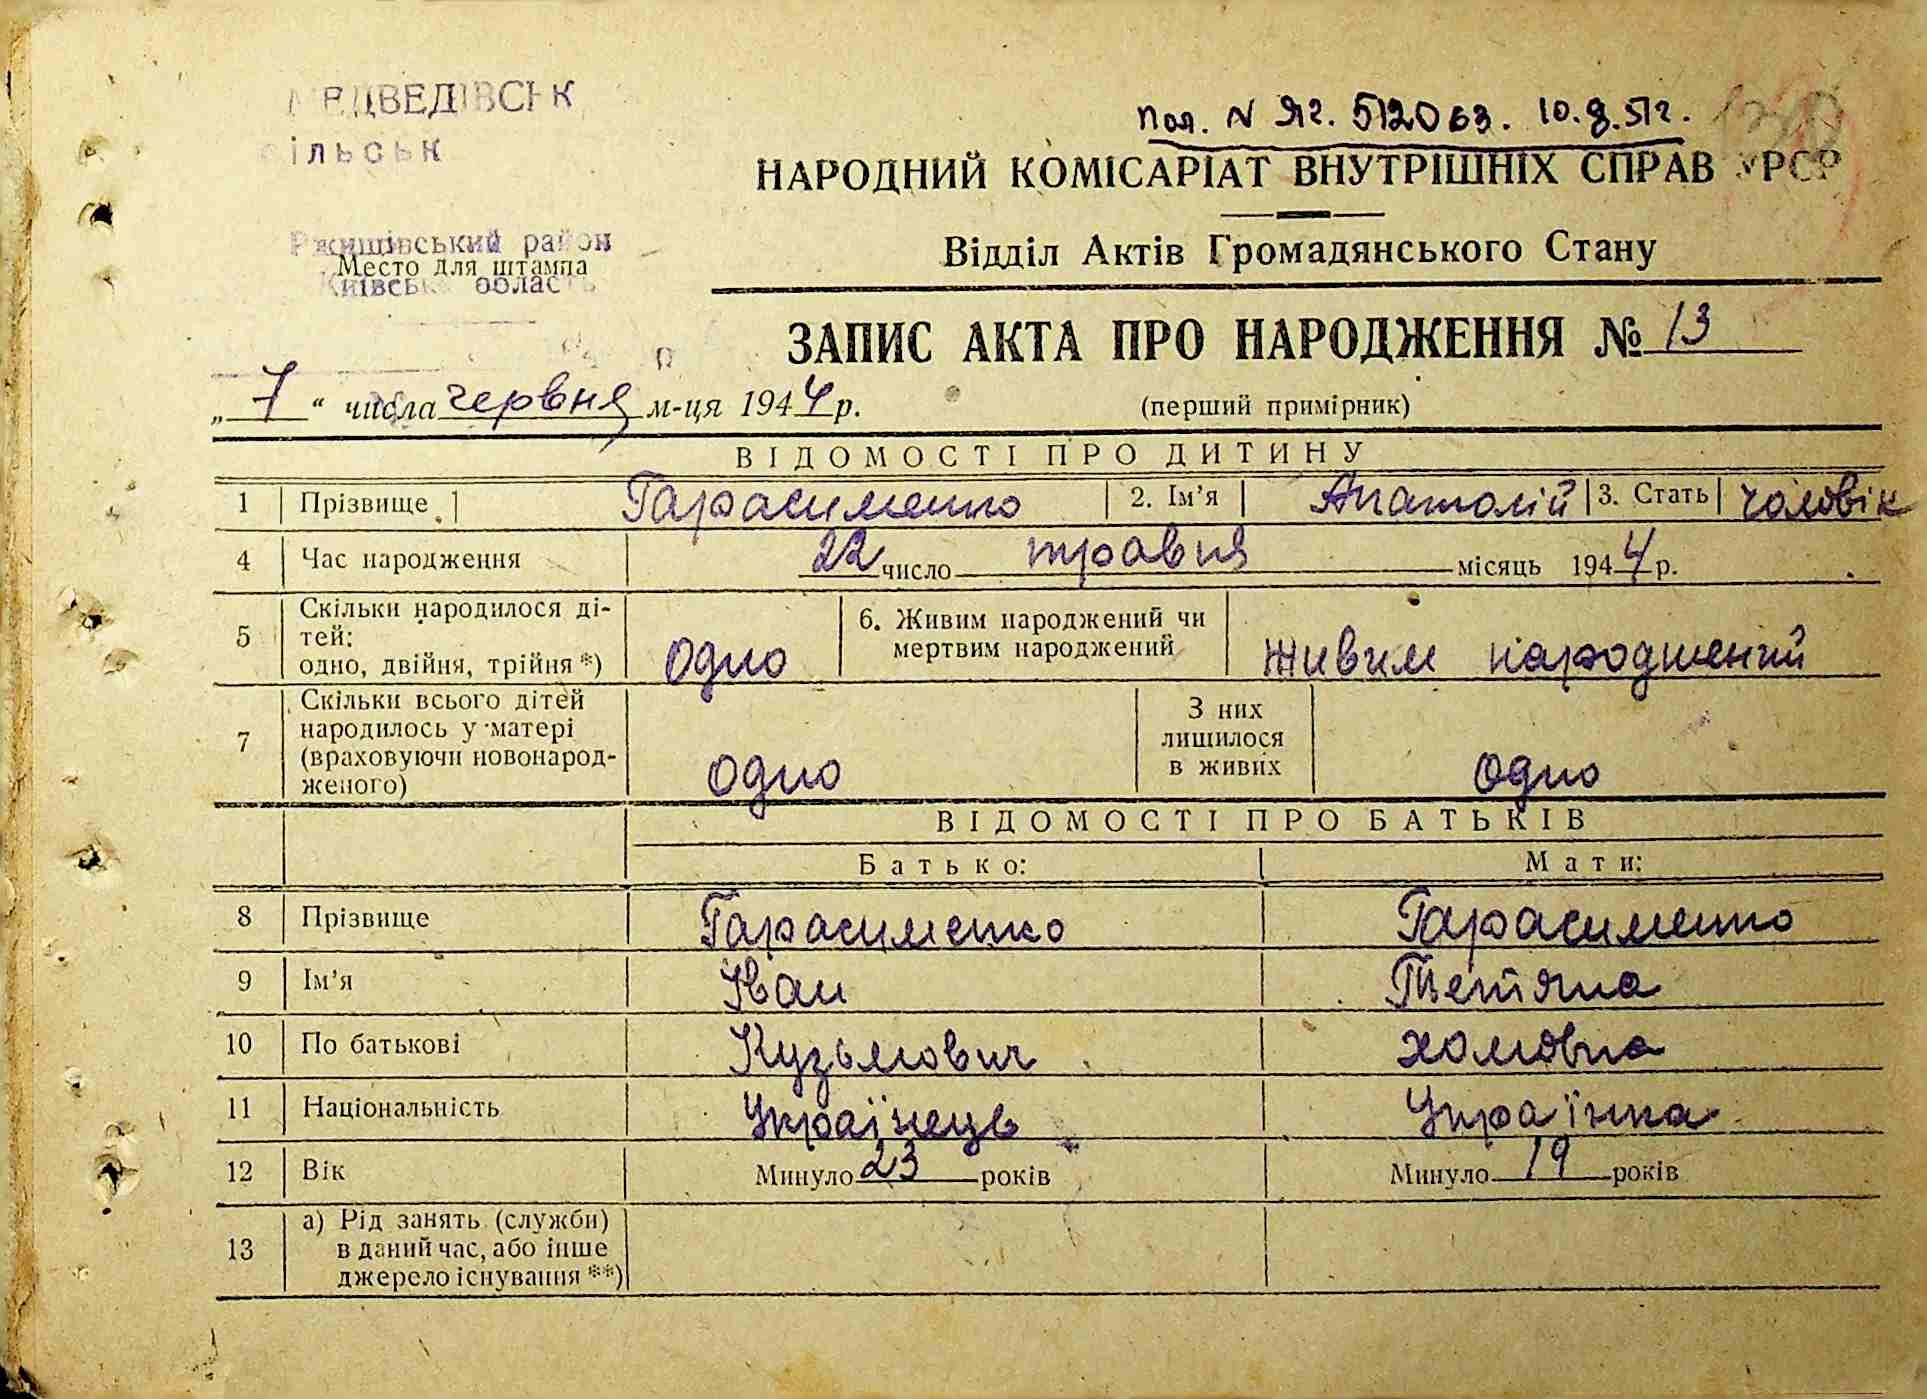 МЕДВЕДІВСЬК
сільськ
Ржищівський район
Место для штампа
Київськ област
Пол. N ЯГ. 512063. 10.8.51г.
НАРОДНИЙ КОМІСАРІАТ ВНУТРІШНІХ СПРАВ УРСР
Відділ Актів Громадянського Стану
ЗАПИС АКТА ПРО НАРОДЖЕННЯ № 13
„7“ числа червня м-ця 1944 р.
(перший примірник)
ВІДОМОСТІ ПРО ДИТИНУ
1 Прізвище Гарасименко 2. Ім'я Анатолій 3. Стать чоловік
4 Час народження 22 число травня місяць 1944 р.
5 Скільки народилося ді-
тей:
одно, двійня, трійня *) одно
6. Живим народжений чи
мертвим народжений живим народжений
7 Скільки всього дітей
народилось у матері
(враховуючи новонарод-
женого) одно
З них
лишилося
в живих одно
ВІДОМОСТІ ПРО БАТЬКІВ
Батько: Мати:
8 Прізвище Гарасименко Гарасименко
9 Ім'я Іван Тетяна
10 По батькові Кузьмович Хомовна
11 Національність Українець Українка
12 Вік Минуло 23 років Минуло 19 років
13 а) Рід занять (служби)
в даний час, або інше
джерело існування **)